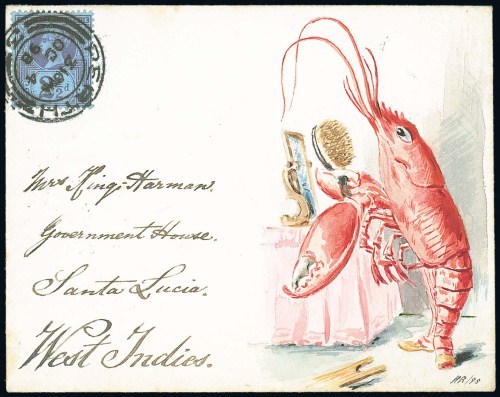 Mrs King-Harman.
Government House.
Santa Lucia.
West Indies.